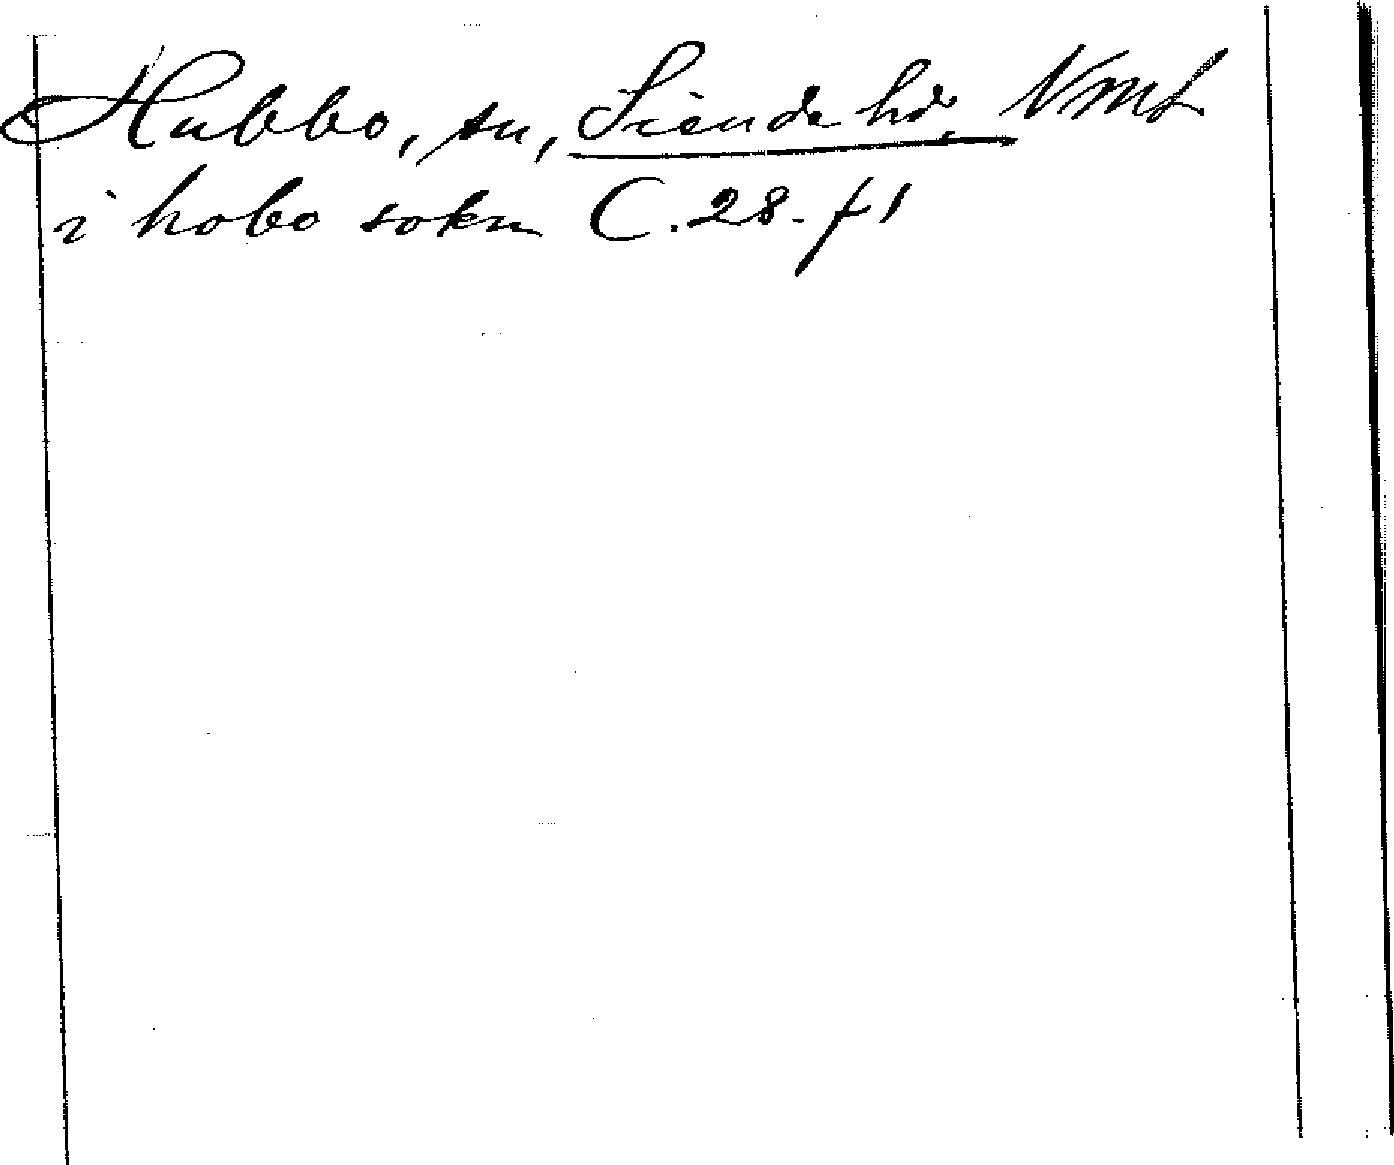 Hubbo, sn, Siende hd, Vml
i hobo sokn C. 28. f1